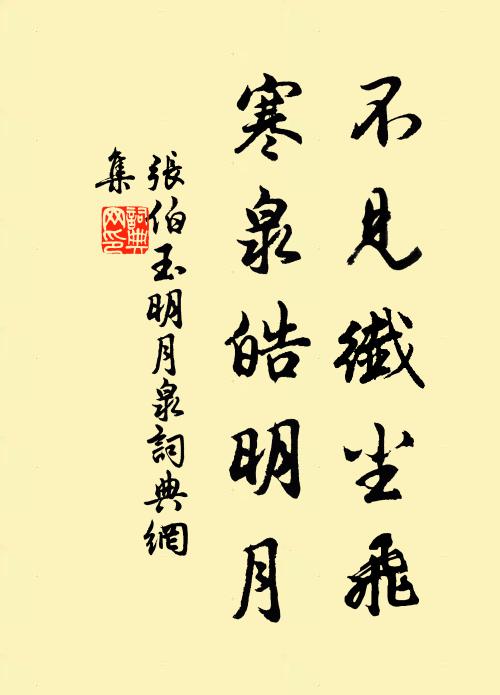 不見纖尘飛
寒泉皓明月
張伯玉明月泉詞典網
集
詞典网印